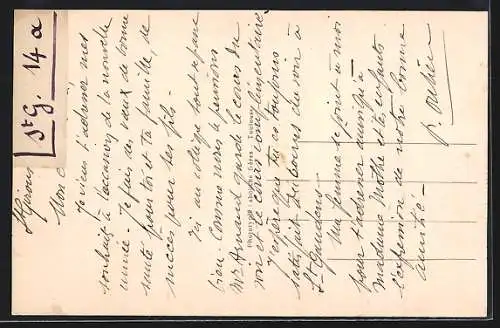 St G. 14a
St Girons
Mon c
Je viens t'adresser mes
souhaits à l'occasion de la nouvelle
année. Je fais des vœux de bonne
santé pour toi et ta famille, de
succès pour tes fils.
Ici au collège tout se passe
bien. Comme nous le pensions
Mr Arnaud garde le cours du
soir et le cours complémentaire.
J'espère que tu es toujours
satisfait du cours du soir à
St Gaudens.
Ma femme se joint à moi
pour t'adresser ainsi qu'à
Madame Mothe et tes enfants
l'expression de notre bonne
amitié.
Toulouse